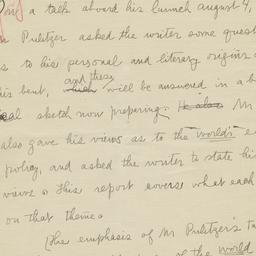 a talk aboard his launch august 4,
Pulitzer asked the writer some quest
s to his personal and literary origins
his bent, which and these will be answered in a b
sketch now preparing. He also M
also gave his views as to the worlds e
policy, and asked the writer to state his
views. This report covers what each
on that theme.
(The emphasis of Mr Pulitzer's ta
of the world